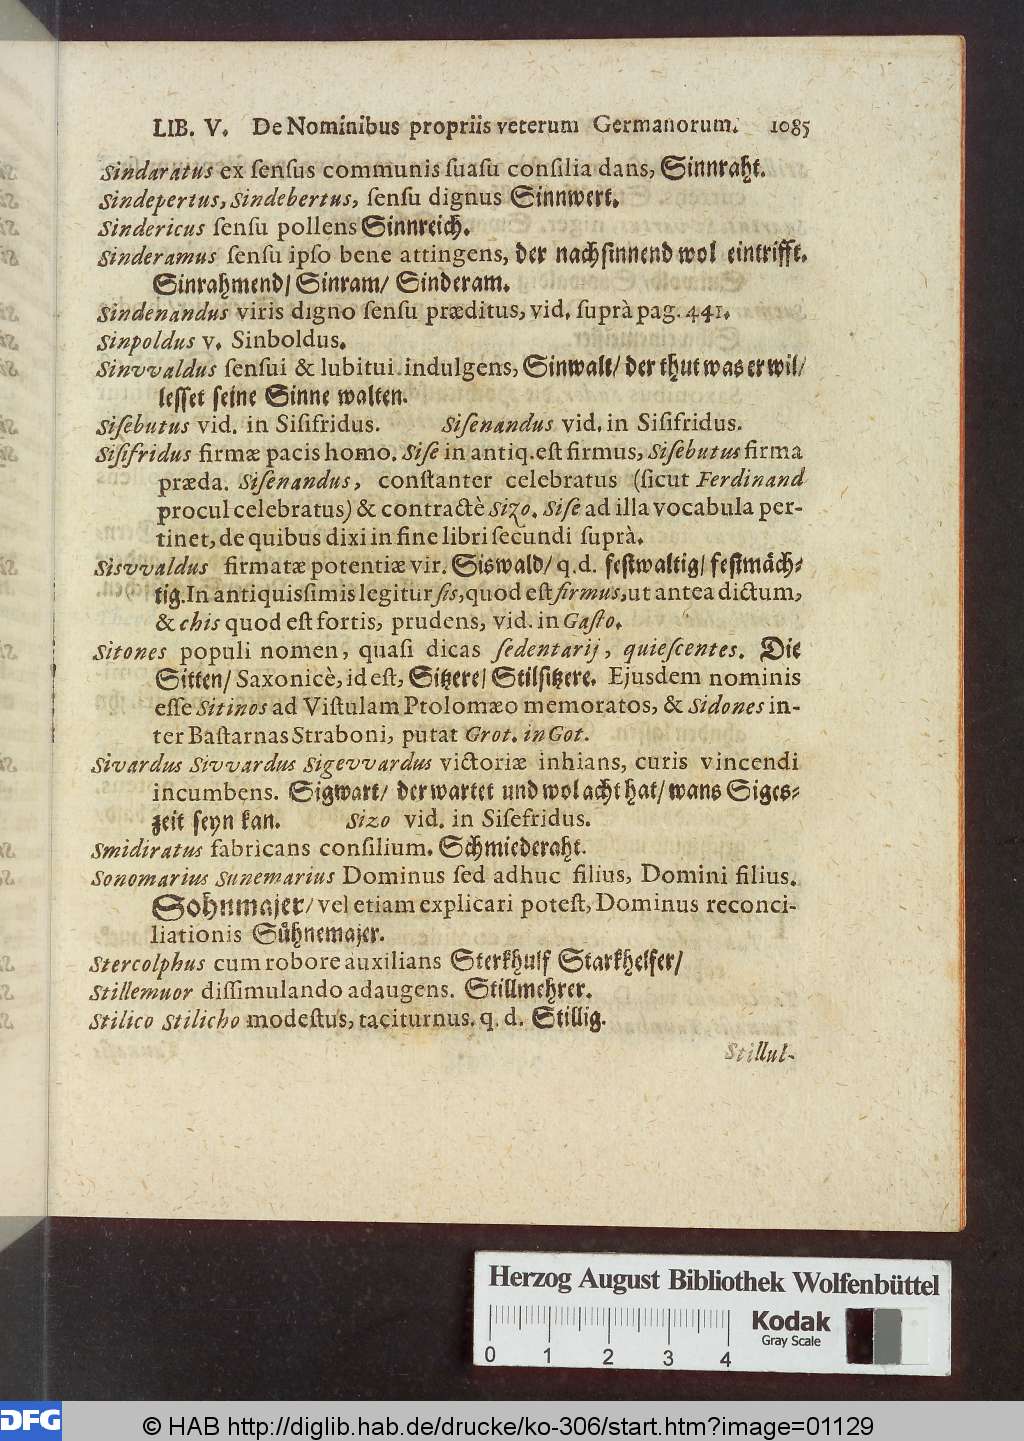 LIB. V. De Nominibus propriis veterum Germanorum. 1085
Sindaratus ex sensus communis suasu consilia dans, Sinnraht.
Sindepertus, Sindebertus, sensu dignus Sinnwert.
Sindericus sensu pollens Sinnreich.
Sinderamus sensu ipso bene attingens, der nachsinnend wol eintrifft.
Sinrahmend/ Sinram/ Sinderam.
Sindenandus viris digno sensu præditus, vid. suprà pag. 441.
Sinpoldus v. Sinboldus.
Sinvvaldus sensui & lubitui indulgens, Sinwalt/ der thut was er wil/
lesset seine Sinne walten.
Sisebutus vid. in Sisifridus. Sisenandus vid. in Sisifridus.
Sisifridus firmæ pacis homo. Sise in antiq. est firmus, Sisebutus firma
præda. Sisenandus, constanter celebratus (sicut Ferdinand
procul celebratus) & contractè Sizo. Sise ad illa vocabula per-
tinet, de quibus dixi in fine libri secundi suprà.
Sisvvaldus firmatæ potentiæ vir. Siswald/ q.d. festwaltig/ festmåch-
tig. In antiquissimis legitur sis, quod est firmus, ut antea dictum,
& chis quod est fortis, prudens, vid. in Gasto.
Sitones populi nomen, quasi dicas sedentarij, quiescentes. Die
Sitten/ Saxonicè, id est, Sitzere/ Stilsitzere. Ejusdem nominis
esse Sitinos ad Vistulam Ptolomæo memoratos, & Sidones in-
ter Bastarnas Straboni, putat Grot. in Got.
Sivardus Sivvardus Sigevvardus victoriæ inhians, curis vincendi
incumbens. Sigwart/ der wartet und wol acht hat/ wans Siges-
zeit seyn kan. Sizo vid. in Sisefridus.
Smidiratus fabricans consilium. Schmiederaht.
Sonomarius Sunemarius Dominus sed adhuc filius, Domini filius.
Sohnmajer/ vel etiam explicari potest, Dominus reconci-
liationis Sůhnemajer.
Stercolphus cum robore auxilians Sterkhulf Starkhelfer/
Stillemuor dissimulando adaugens. Stillmehrer.
Stilico Stilicho modestus, taciturnus. q. d. Stillig.
Stillul-
Herzog August Bibliothek Wolfenbüttel
Kodak
Gray Scale
0 1 2 3 4
DFG
© HAB http://diglib.hab.de/drucke/ko-306/start.htm?image=01129